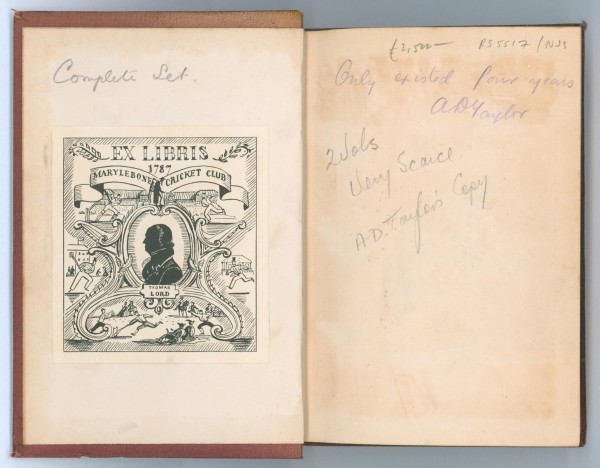 Complete Set.
EX LIBRIS
1787
MARYLEBONE CRICKET CLUB
THOMAS
LORD
£2,500—
Only existed four years
A D Taylor
2 Vols
Very Scarce
A.D. Taylor's Copy